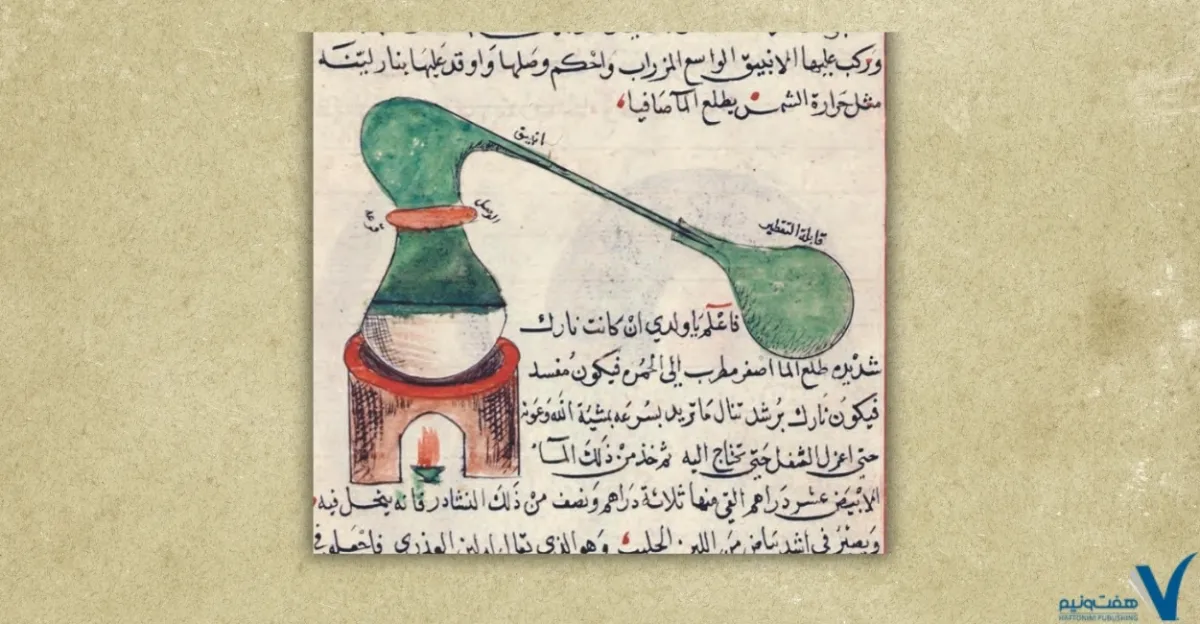 وركب عليها الانبيق الواسع المزراب واحكم وصلها واوقد عليها بنار لينة
مثل حرارة الشمس يطلع الما صافيا
انبيق
الوصل
قابلة التقطير
فاعلم يا ولدي ان كانت نارك
شديده طلع الما اصفر مطرب الى الحمره فيكون مفسد
فيكون نارك برشد تنال ما تريد بسرعه بمشية الله وعونه
حتى اعزل الثفل حتى تحتاج اليه ثم خذ من ذلك المآء
الابيض عشر دراهم القي منها ثلاثة دراهم ونصف من ذلك النشادر فانه ينحل فيه
ويصير في اشد بياض من اللبن الحليب وهو الذي
هفت‌ونیم
HAFTONIM PUBLISHING